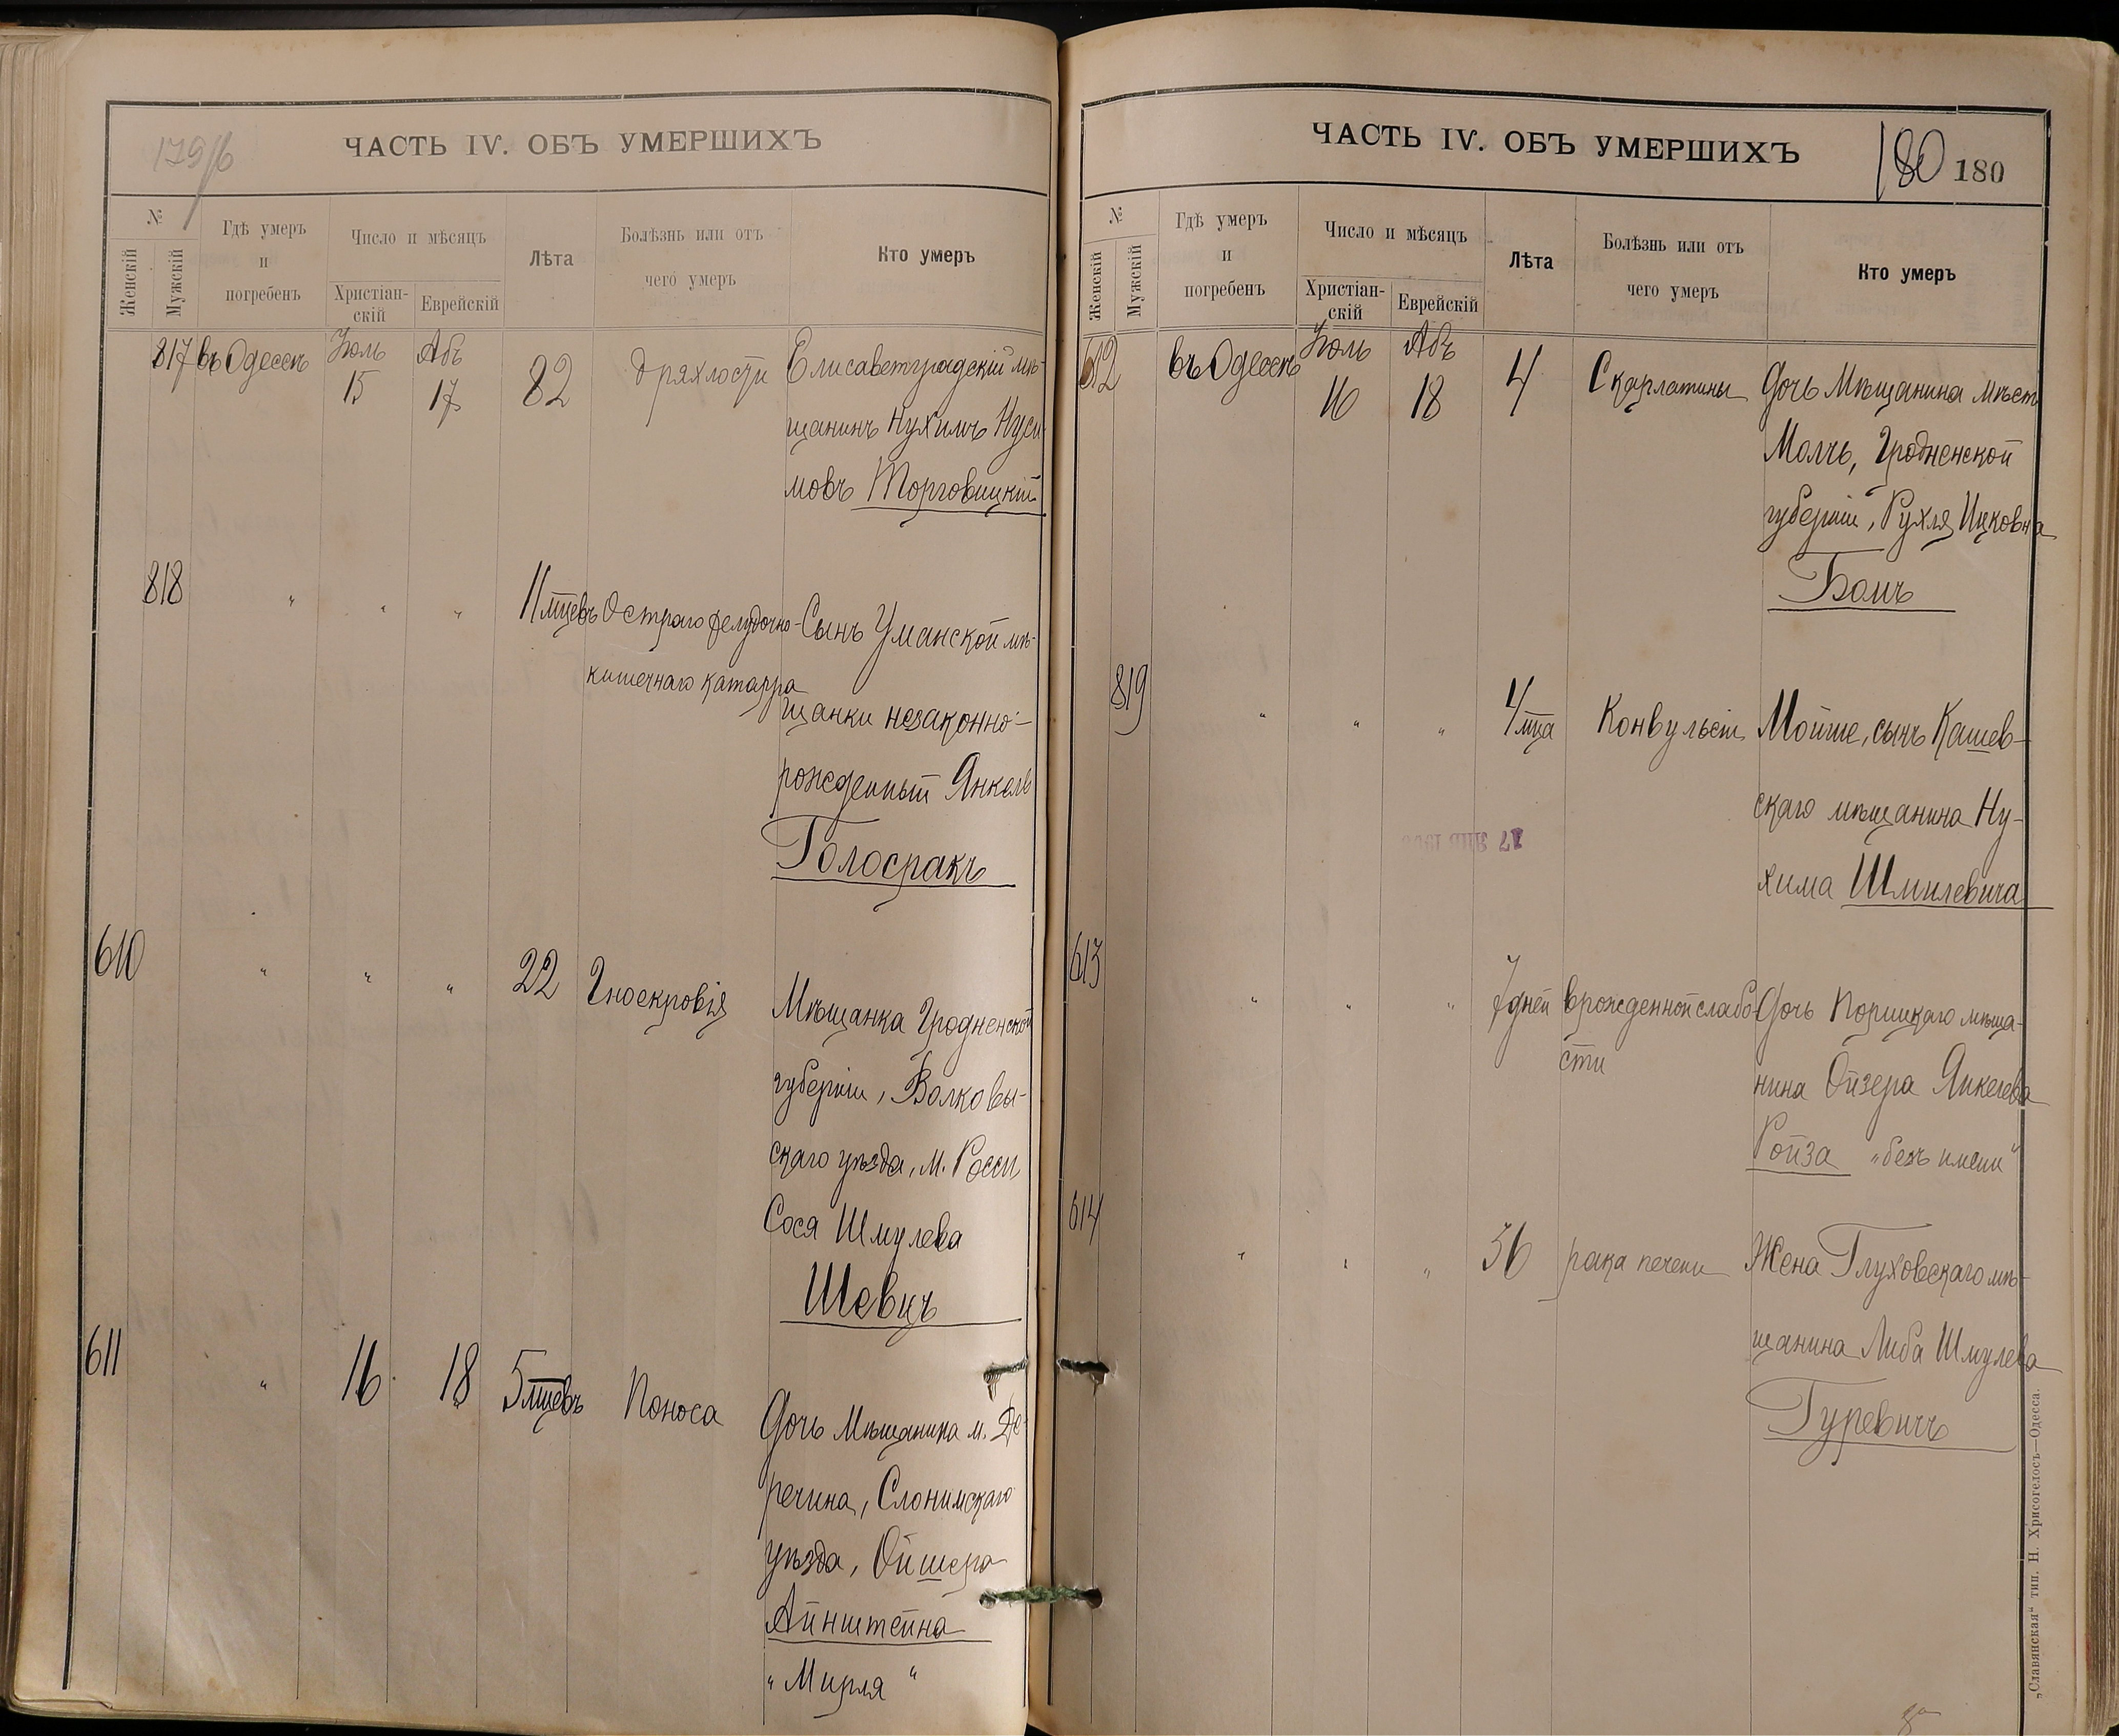 179/б
ЧАСТЬ IV. ОБЪ УМЕРШИХЪ
№
Женскій
Мужскій
Гдѣ умеръ
и
погребенъ
Число и мѣсяцъ
Христіан-
скій
Еврейскій
Лѣта
Болѣзнь или отъ
чего умеръ
Кто умеръ
817 въ Одессѣ Іюль 15 Абъ 17 82 дряхлости Елисаветградскій мѣ-
щанинъ Нухимъ Нуси-
мовъ Торговицкій
818 " " " 11 мцевъ Остраго желудочно- Сынъ Уманской мѣ-
кишечнаго катарра
щанки незаконно-
рожденный Янкель
Голосракъ
610 " " " 22 Гноекровія Мѣщанка Гродненской
губерніи, Волковы-
скаго уѣзда, м. Росси
Сося Шмулева
Шевцъ
611 " 16 18 5 мцевъ Поноса Дочь Мѣщанина м. Де-
речина, Слонимскаго
уѣзда, Ойшера
Айнштейна
"Мирля"
ЧАСТЬ IV. ОБЪ УМЕРШИХЪ
180 180
№
Женскій
Мужскій
Гдѣ умеръ
и
погребенъ
Число и мѣсяцъ
Христіан-
скій
Еврейскій
Лѣта
Болѣзнь или отъ
чего умеръ
Кто умеръ
612 въ Одессѣ Іюль 16 Абъ 18 4 Скарлатины Дочь Мѣщанина мѣст.
Молчь, Гродненской
губерніи, Рухля Ицковна
Бомъ
819 " " " 4 мца Конвульсіи Мойше, сынъ Кашев-
скаго мѣщанина Ну-
хима Шмилевича
17 ЯНВ
613 " " " 7 дней врожденной слабо- Дочь Порицкаго мѣща-
сти
нина Ойзера Янкелева
Ройза "безъ имени"
614 " " " 36 рака печени Жена Глуховскаго мѣ-
щанина Либа Шмулева
Гуревичъ
„Славянская“ тип. Н. Хрисогелосъ—Одесса.